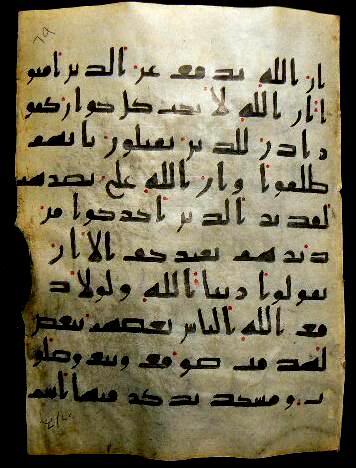 ان الله يدفع عن الذين امنو
ا ان الله لا يحب كل خوان كفو
ر اذن للذين يقتلون بانهم
ظلموا وان الله على نصرهم
لقدير الذين اخرجوا من
ديرهم بغير حق الا ان
يقولوا ربنا الله ولولا د
فع الله الناس بعضهم ببعض
لهدمت صومع وبيع وصلو
ت ومسجد يذكر فيها اسم